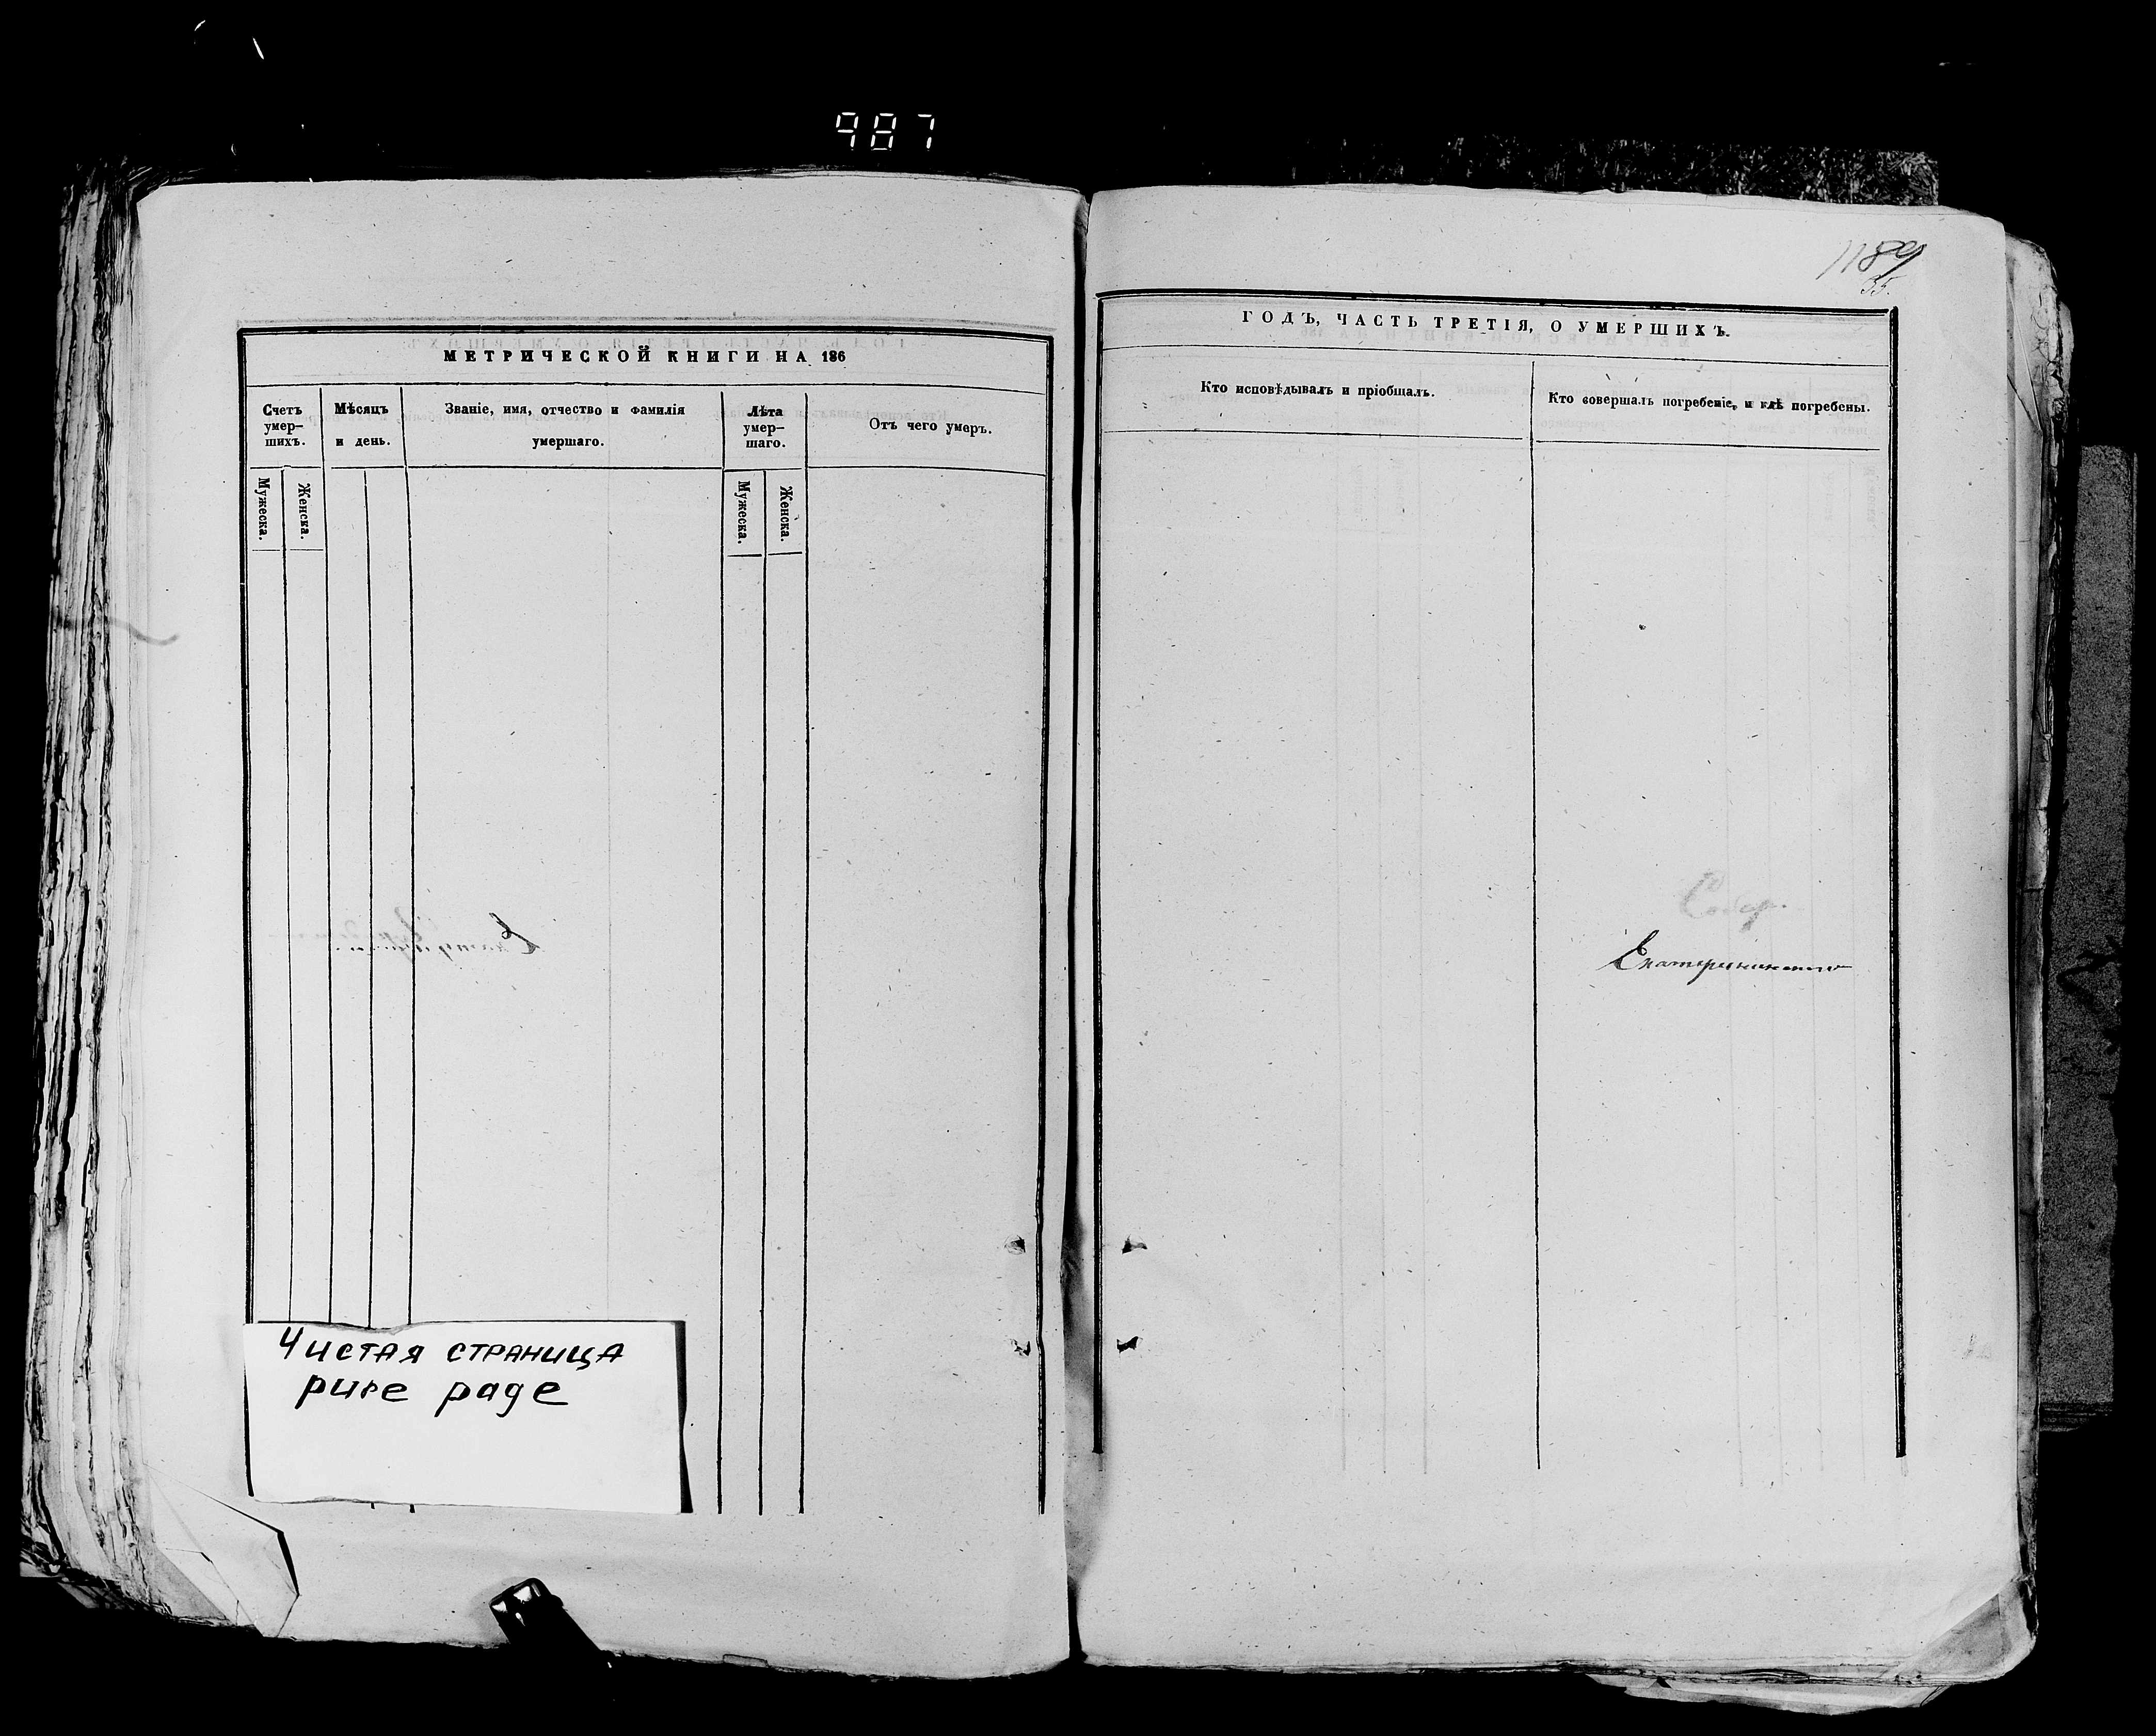 987
МЕТРИЧЕСКОЙ КНИГИ НА 186
Счетъ умер-шихъ.
Мѣсяцъ и день.
Званіе, имя, отчество и фамилія умершаго.
Лѣта умер-шаго.
Отъ чего умеръ.
Мужеска.
Женска.
Мужеска.
Женска.
Чистая страница
pure page
1189
35.
ГОДЪ, ЧАСТЬ ТРЕТІЯ, О УМЕРШИХЪ.
Кто исповѣдывалъ и пріобщалъ.
Кто совершалъ погребеніе, и гдѣ погребены.